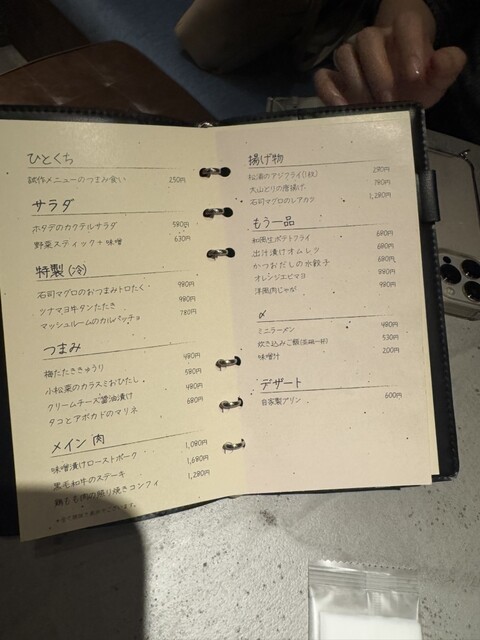 ひとくち
試作メニューのつまみ食い 250円
サラダ
ホタテのカクテルサラダ 580円
野菜スティック+味噌 630円
特製(冷)
石司マグロのおつまみトロたく 980円
ツナマヨ牛タンたたき 980円
マッシュルームのカルパッチョ 780円
つまみ
梅たたききゅうり 480円
小松菜のカラスミおひたし 580円
クリームチーズ醤油漬け 480円
タコとアボカドのマリネ 680円
メイン 肉
味噌漬けローストポーク 1,080円
黒毛和牛のステーキ 1,680円
鶏もも肉の照り焼きコンフィ 1,280円
揚げ物
松浦のアジフライ(1枚) 280円
大山どりの唐揚げ 780円
石司マグロのレアカツ 1,280円
もう一品
和風生ポテトフライ 680円
出汁漬けオムレツ 680円
かつおだしの水餃子 680円
オレンジエビマヨ 880円
洋風肉じゃが 980円
〆
ミニラーメン 480円
炊き込みご飯 530円
味噌汁 200円
デザート
自家製プリン 600円